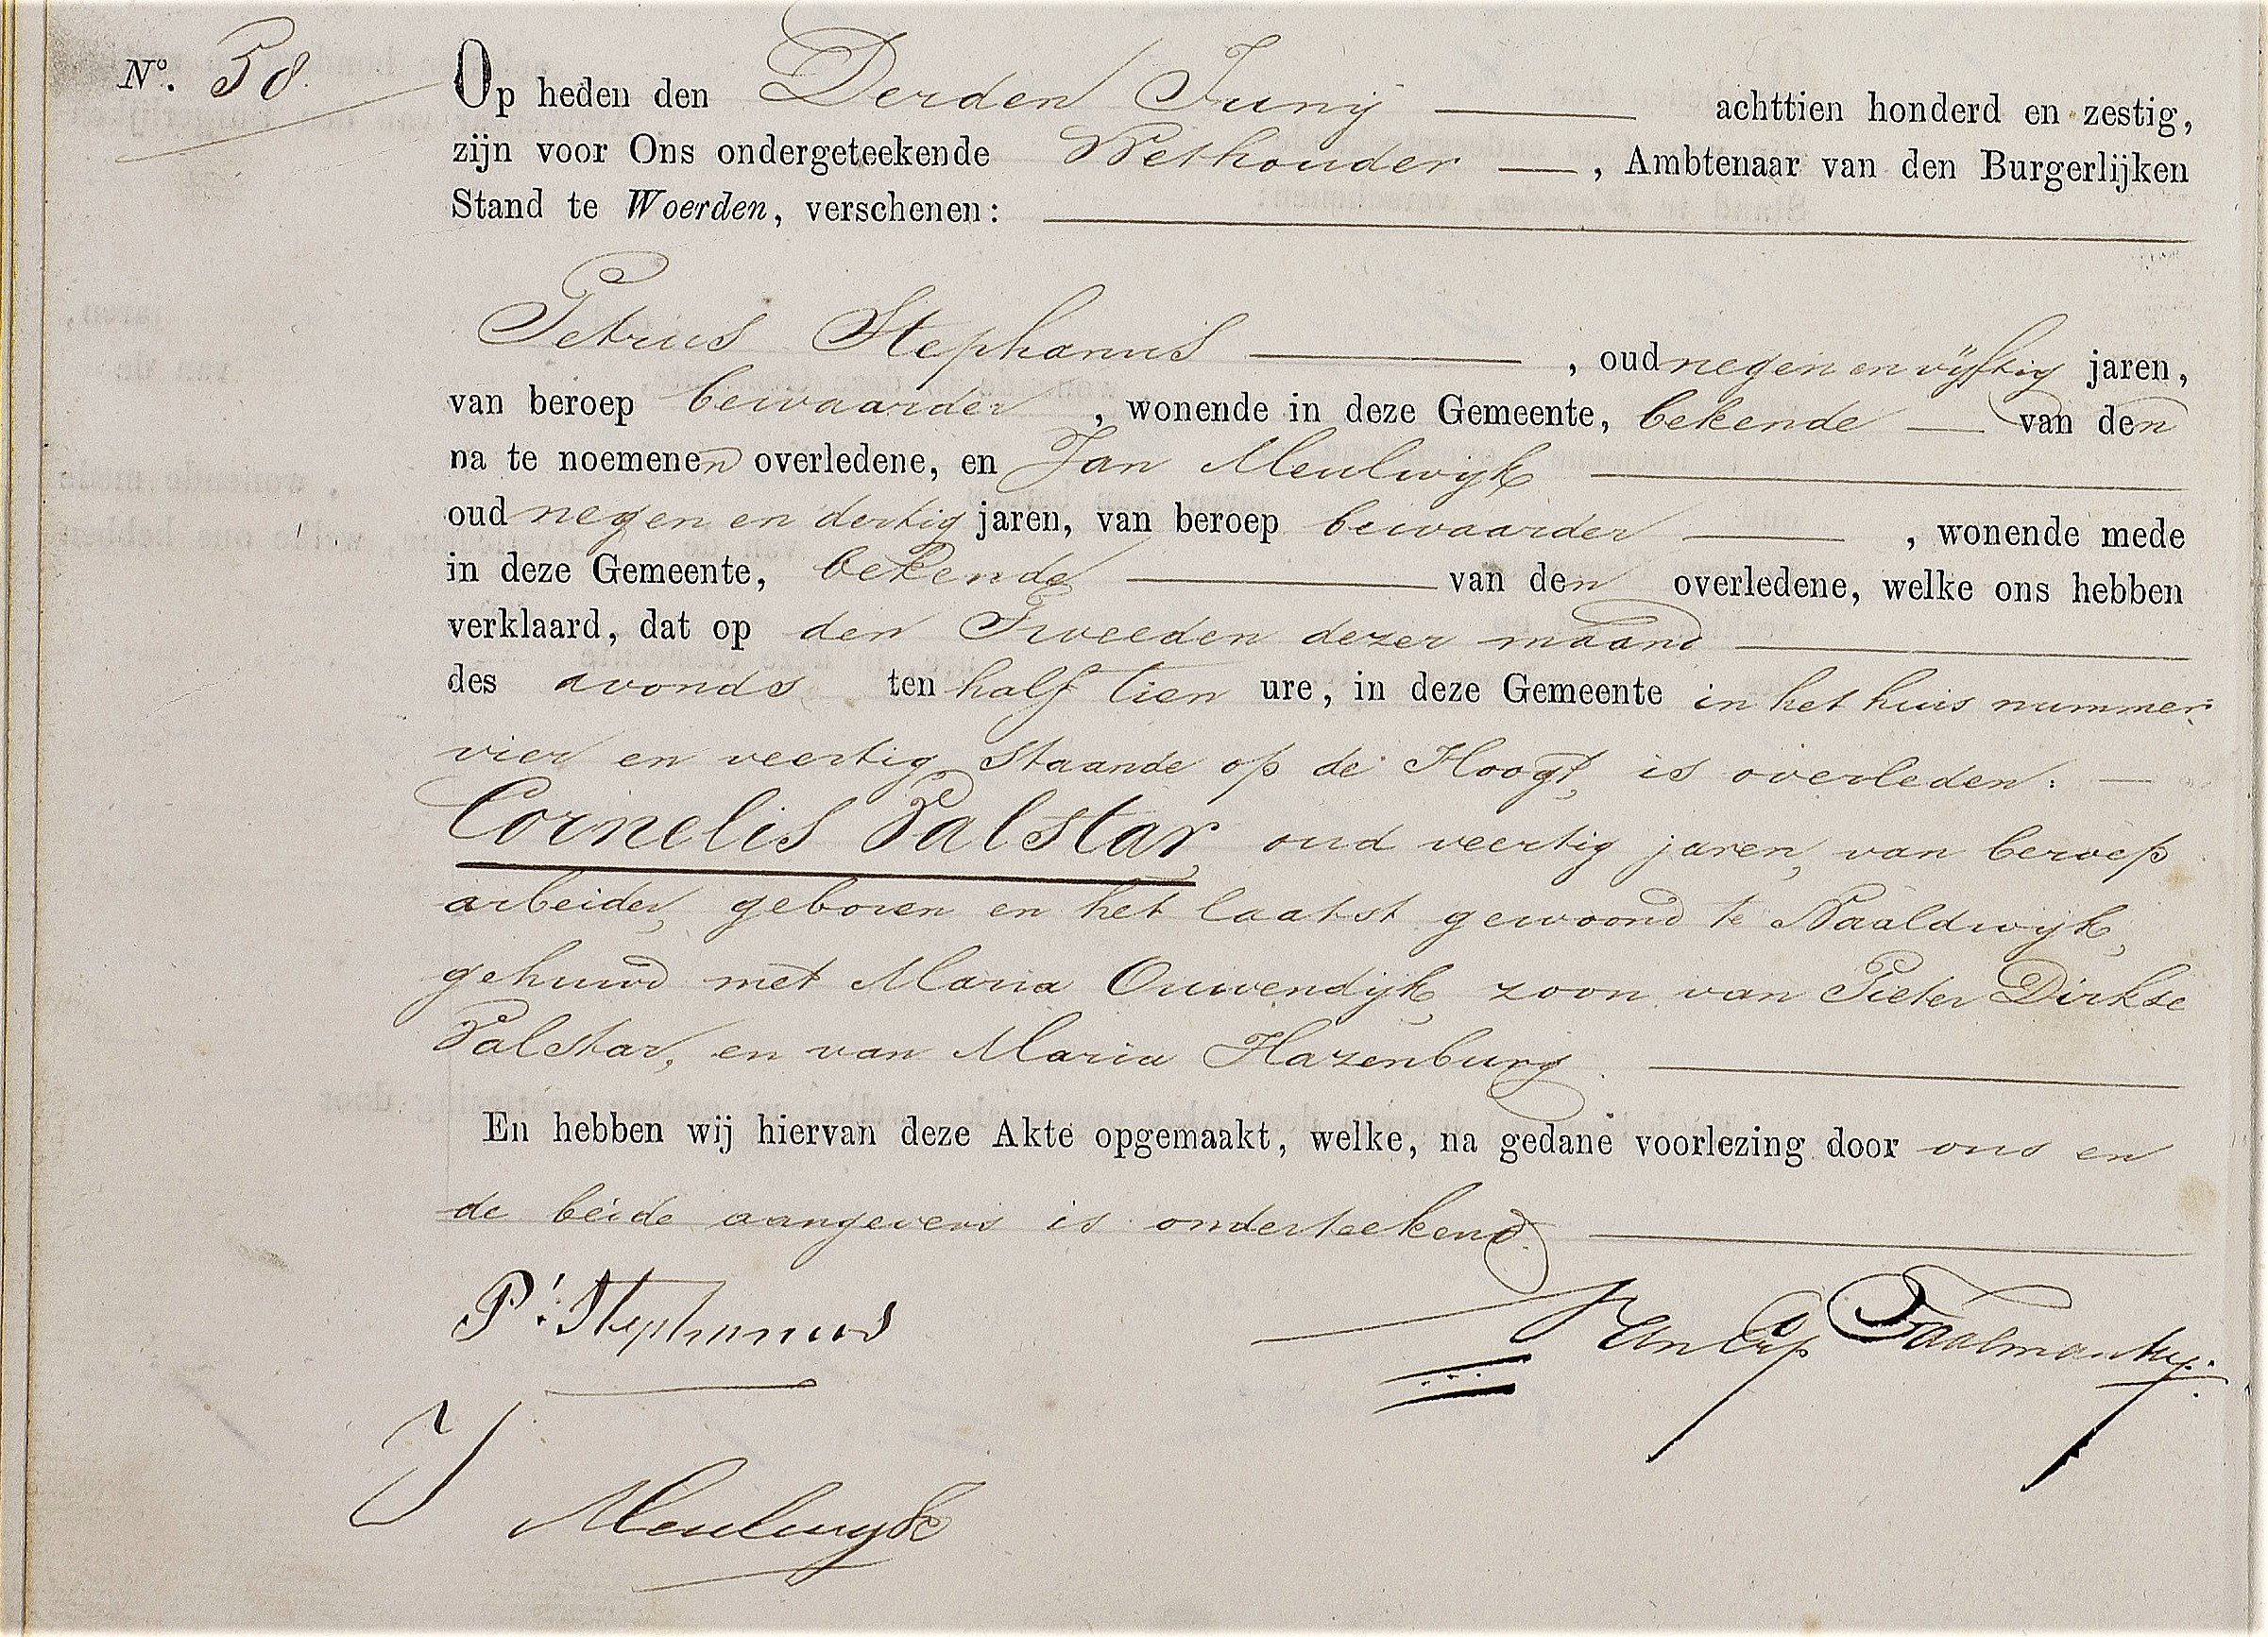 N°. 58.
Op heden den Derden Junij achttien honderd en zestig,
zijn voor Ons ondergeteekende Wethouder, Ambtenaar van den Burgerlijken
Stand te Woerden, verschenen:
Petrus Stephanus, oud negen en vijftig jaren,
van beroep bewaarder, wonende in deze Gemeente, bekende van den
na te noemenen overledene, en Jan Meulwijk
oud negen en dertig jaren, van beroep bewaarder, wonende mede
in deze Gemeente, bekende van den overledene, welke ons hebben
verklaard, dat op den Tweeden dezer maand
des avonds ten half tien ure, in deze Gemeente in het huis nummer
vier en veertig staande op de Hoogt, is overleden:
Cornelis Valstar, oud veertig jaren, van beroep
arbeider, geboren en het laatst gewoond te Naaldwijk,
gehuwd met Maria Ouwendijk, zoon van Pieter Dirkse
Valstar, en van Maria Hazenburg.
En hebben wij hiervan deze Akte opgemaakt, welke, na gedane voorlezing door ons en
de beide aangevers is onderteekend.
P. Stephanus van Erp Taalman Kip.
J Meulwijk